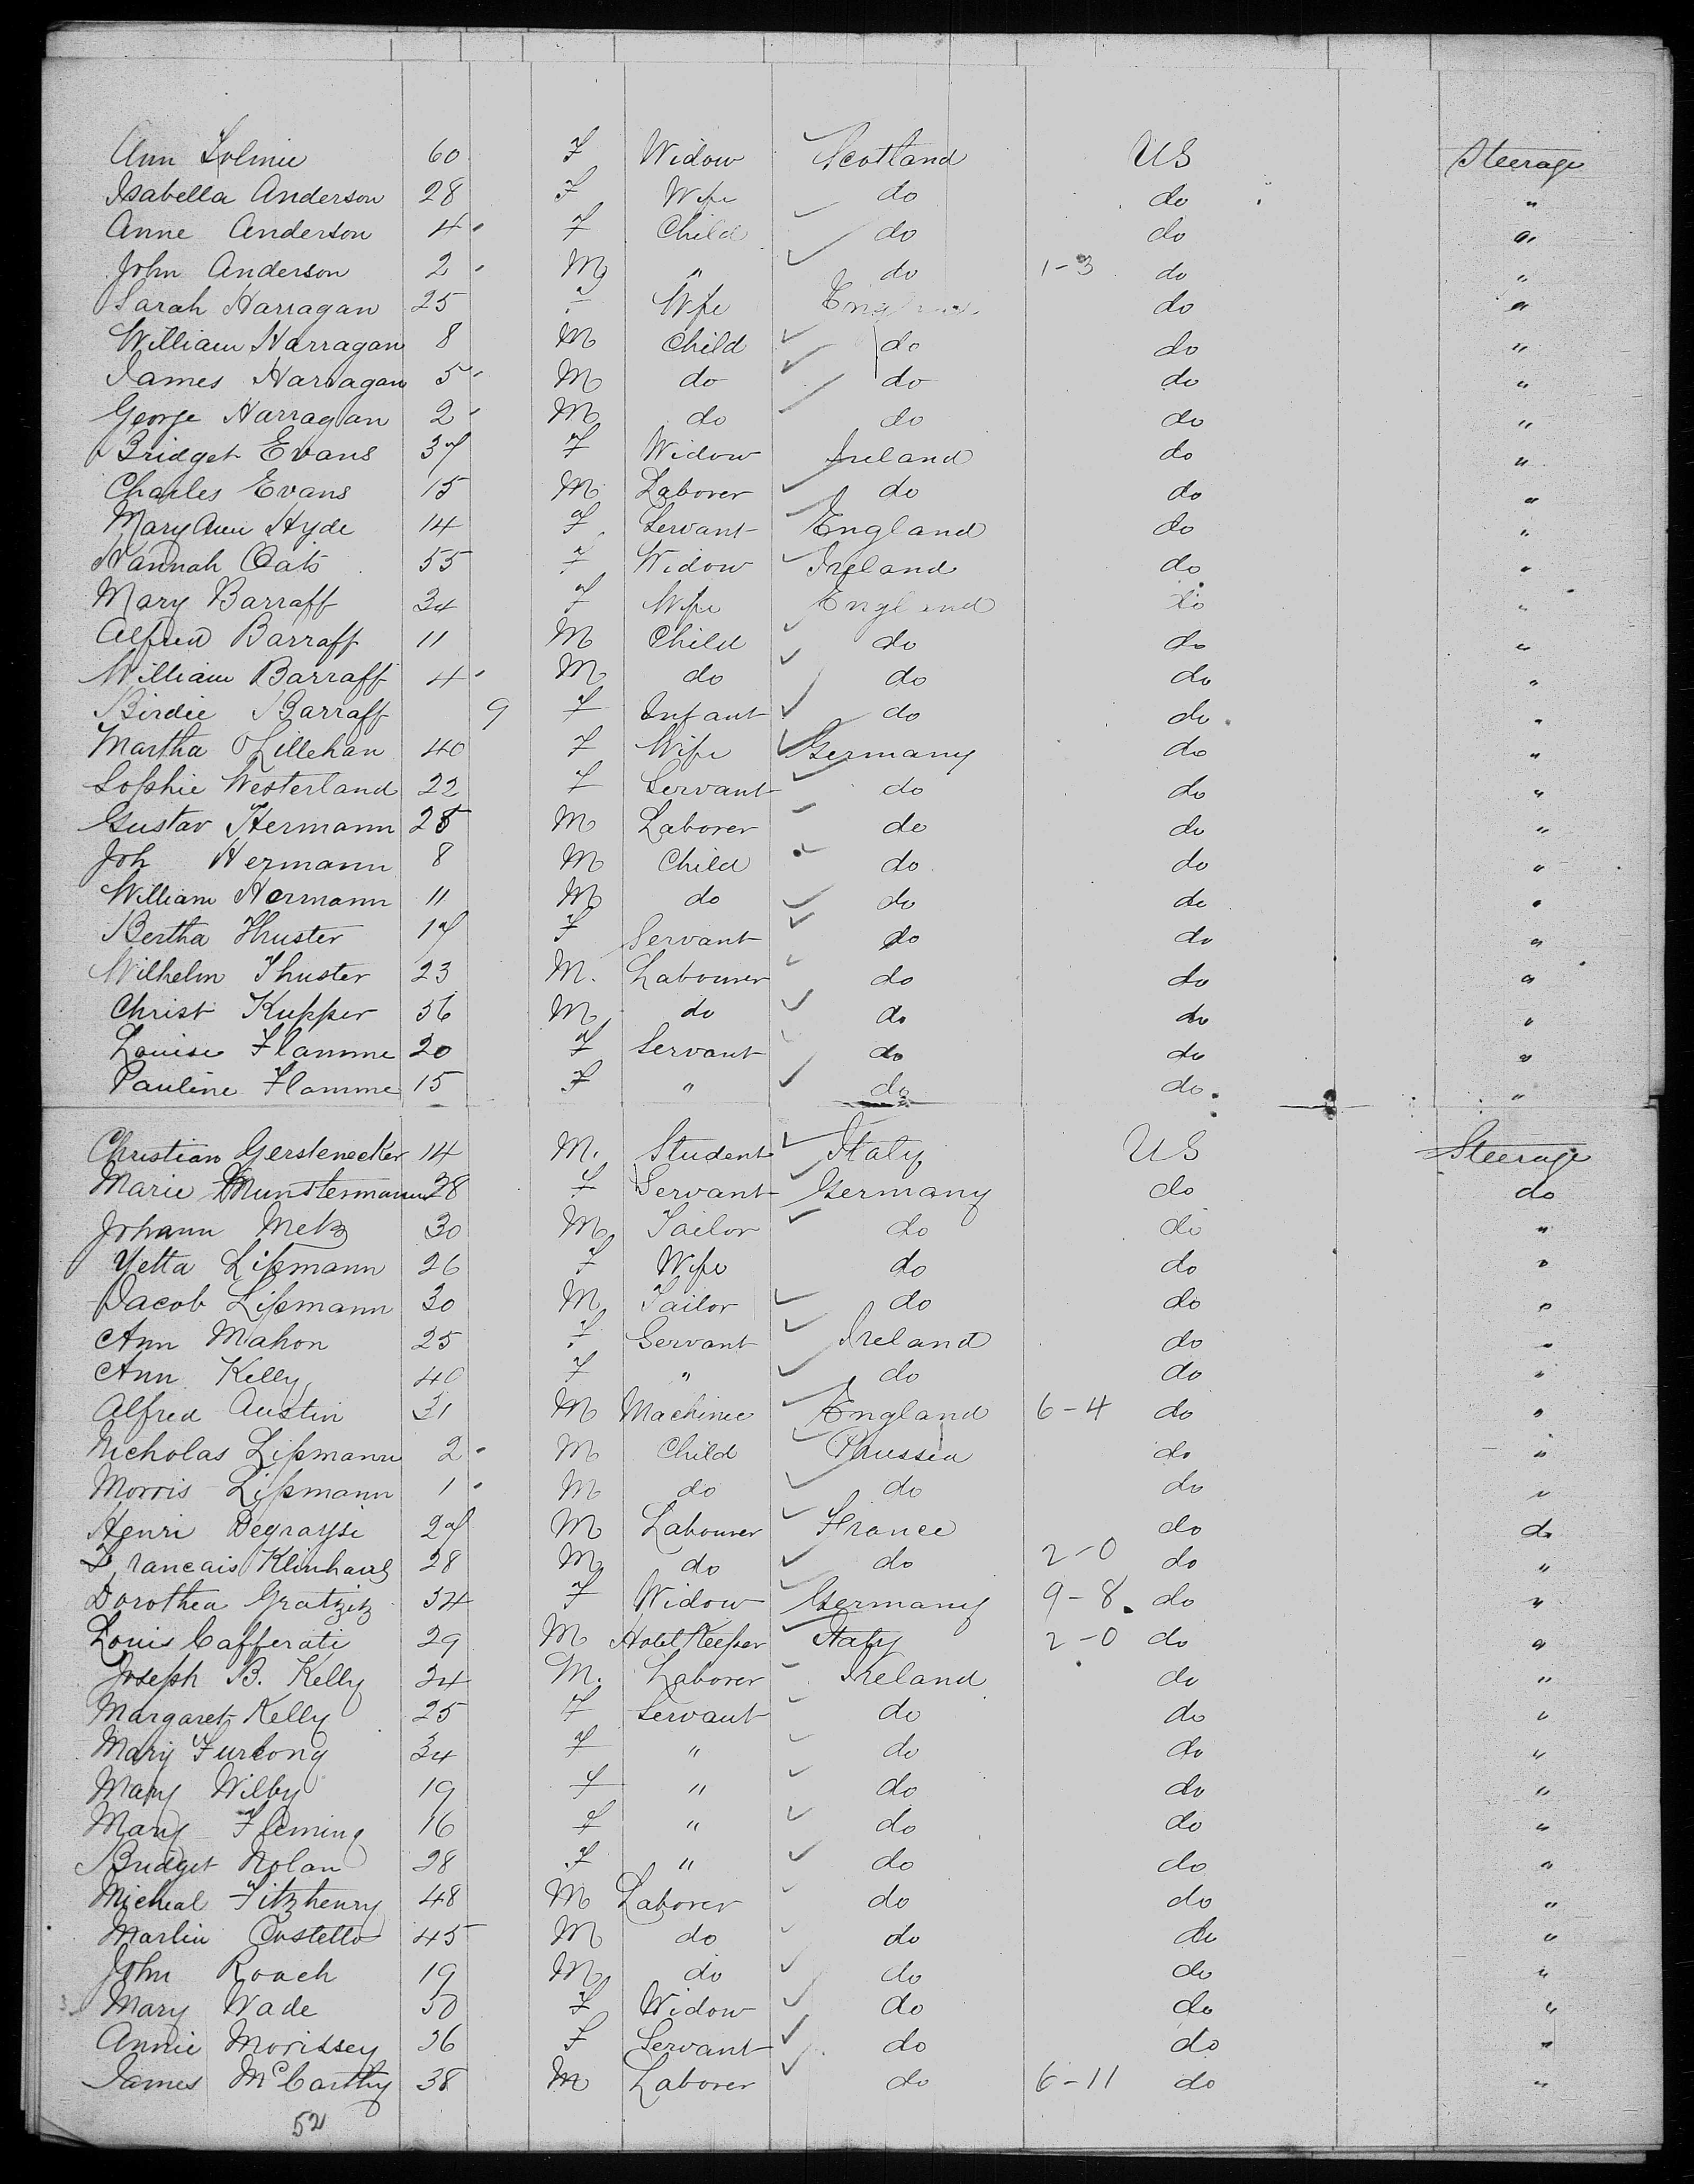 Ann 60 F Widow Scotland US Steerage
Isabella Anderson 28 F Wife do do "
Anne Anderson 4 F Child do do "
John Anderson 2 M " do 1-3 do "
Sarah Harragan 25 F Wife England do "
William Harragan 8 M Child do do "
James Harragan 5 M do do do "
George Harragan 2 M do do do "
Bridget Evans 37 F Widow Ireland do "
Charles Evans 15 M Laborer do do "
Mary Ann Hyde 14 F Servant England do "
Hannah Oats 55 F Widow Ireland do "
Mary Barraff 34 F Wife England do "
Alfred Barraff 11 M Child do do "
William Barraff 4 M do do do "
Birdie Barraff 9 F Infant do do "
Martha 40 F Wife Germany do "
Sophie Westerland 22 F Servant do do "
Gustav Hermann 28 M Laborer do do "
Joh Hermann 8 M Child do do "
William Hermann 11 M do do do "
Bertha Thuster 17 F Servant do do "
Wilhelm Thuster 23 M. Labourer do do "
Christ Kupper 36 M do do do "
Louise Flamme 20 F Servant do do "
Pauline Flamme 15 F " do do "
Christian Gerstenecker 14 M. Student Italy US Steerage
Marie Munstermann 28 F Servant Germany do do
Johann Metz 30 M Tailor do do "
Yetta Lipmann 26 F Wife do do "
Jacob Lipmann 30 M Tailor do do "
Ann Mahon 25 F Servant Ireland do "
Ann Kelly 40 F " do do "
Alfred Austin 31 M Machinee England 6-4 do "
Nicholas Lipmann 2 M Child Prussia do "
Morris Lipmann 1 M do do do "
Henri Degraysi 27 M Labourer France do do
Francais Klinhans 28 M do do 2-0 do "
Dorothea Gratzitz 34 F Widow Germany 9-8 do "
Louis Cafferati 29 M Hotel Keeper Italy 2-0 do "
Joseph B. Kelly 24 M. Laborer Ireland do "
Margaret Kelly 25 F Servant do do "
Mary Furlong 34 F " do do "
Mary Wilby 19 F " do do "
Mary Fleming 16 F " do do "
Bridget Nolan 28 F " do do "
Micheal Fitzhenry 48 M Laborer do do "
Martin Costello 45 M do do do "
John Roach 19 M do do do "
Mary Wade 50 F Widow do do "
Annie Morissey 36 F Servant do do "
James McCarthy 38 M Laborer do 6-11 do "
52